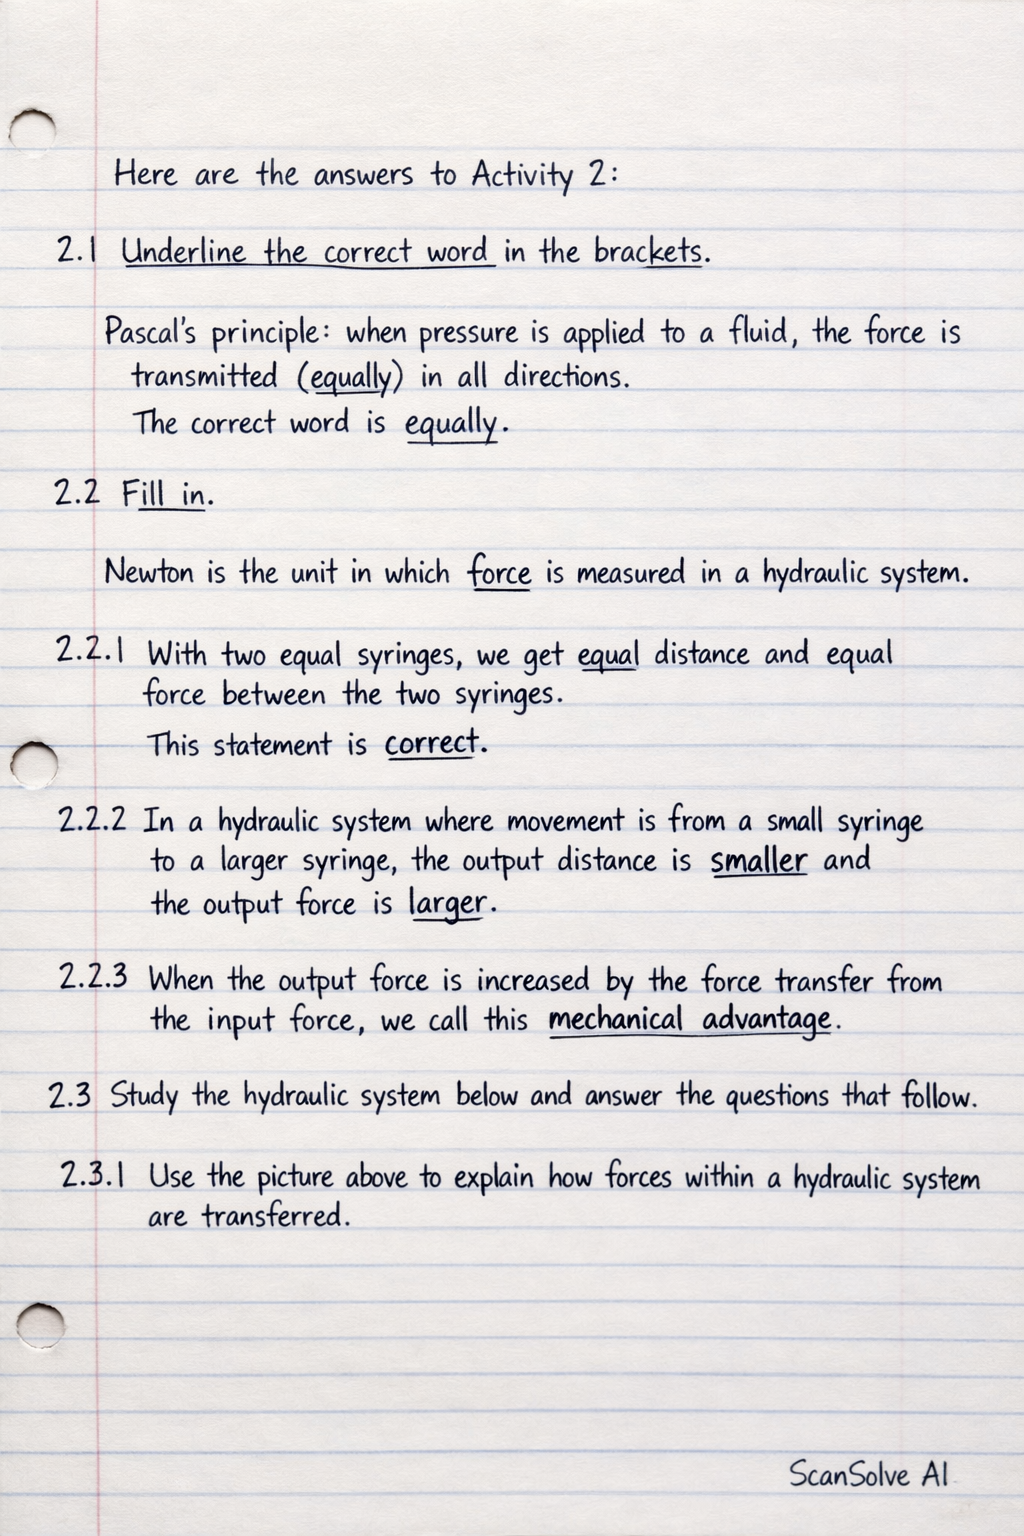 Here are the answers to Activity 2:
2.1 Underline the correct word in the brackets.
Pascal's principle: when pressure is applied to a fluid, the force is
transmitted (equally) in all directions.
The correct word is equally.
2.2 Fill in.
Newton is the unit in which force is measured in a hydraulic system.
2.2.1 With two equal syringes, we get equal distance and equal
force between the two syringes.
This statement is correct.
2.2.2 In a hydraulic system where movement is from a small syringe
to a larger syringe, the output distance is smaller and
the output force is larger.
2.2.3 When the output force is increased by the force transfer from
the input force, we call this mechanical advantage.
2.3 Study the hydraulic system below and answer the questions that follow.
2.3.1 Use the picture above to explain how forces within a hydraulic system
are transferred.
ScanSolve AI